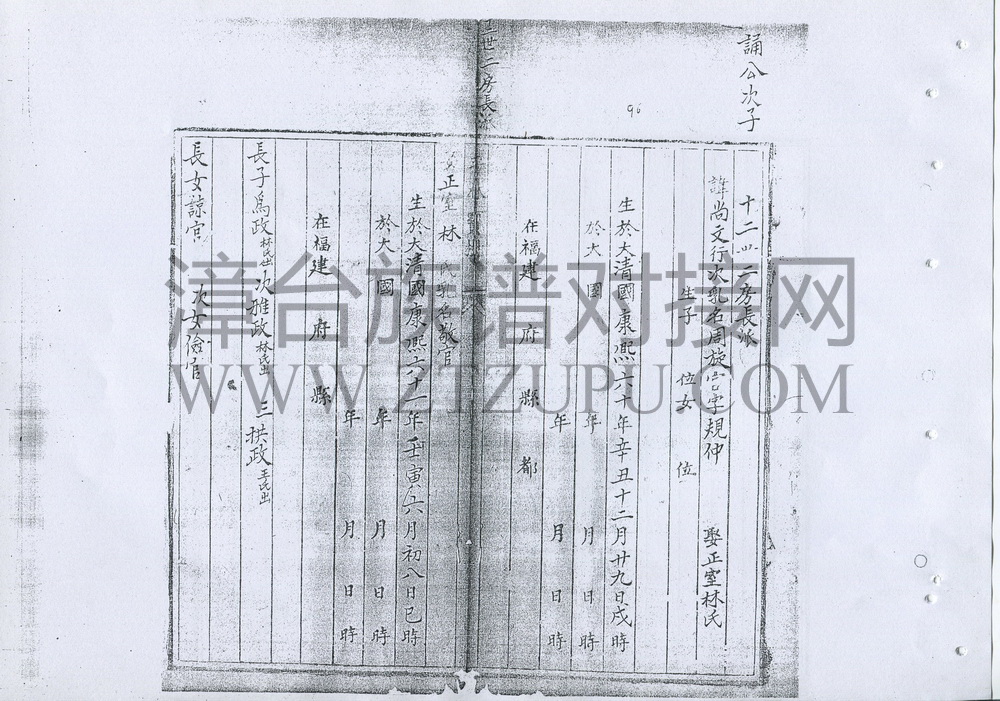 誦公次子
96
十二世二房長派
諱尚文行次乳名周旋官字規仲 娶正室林氏
生子 位女 位
生於大清國康熙六十年辛丑十二月廿九日戌時
於大 國 年 月 日 時
年 月 日 時
在福建 府 縣 都
世二房長派
正室林 氏乳名敬官
生於大清國康熙六十一年壬寅六月初八日巳時
於大 國 年 月 日 時
年 月 日 時
在福建 府 縣
長子為政林氏出 次雅政林氏出 三拱政王氏出
長女諒官 次女儉官
漳台族谱对接网
WWW.ZTZUPU.COM